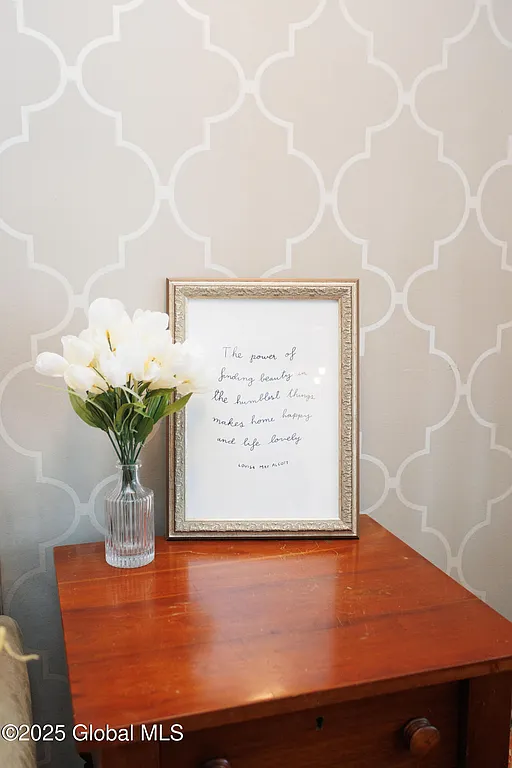 The power of
finding beauty in
the humblest things
makes home happy
and life lovely
LOUISA MAY ALCOTT
©2025 Global MLS